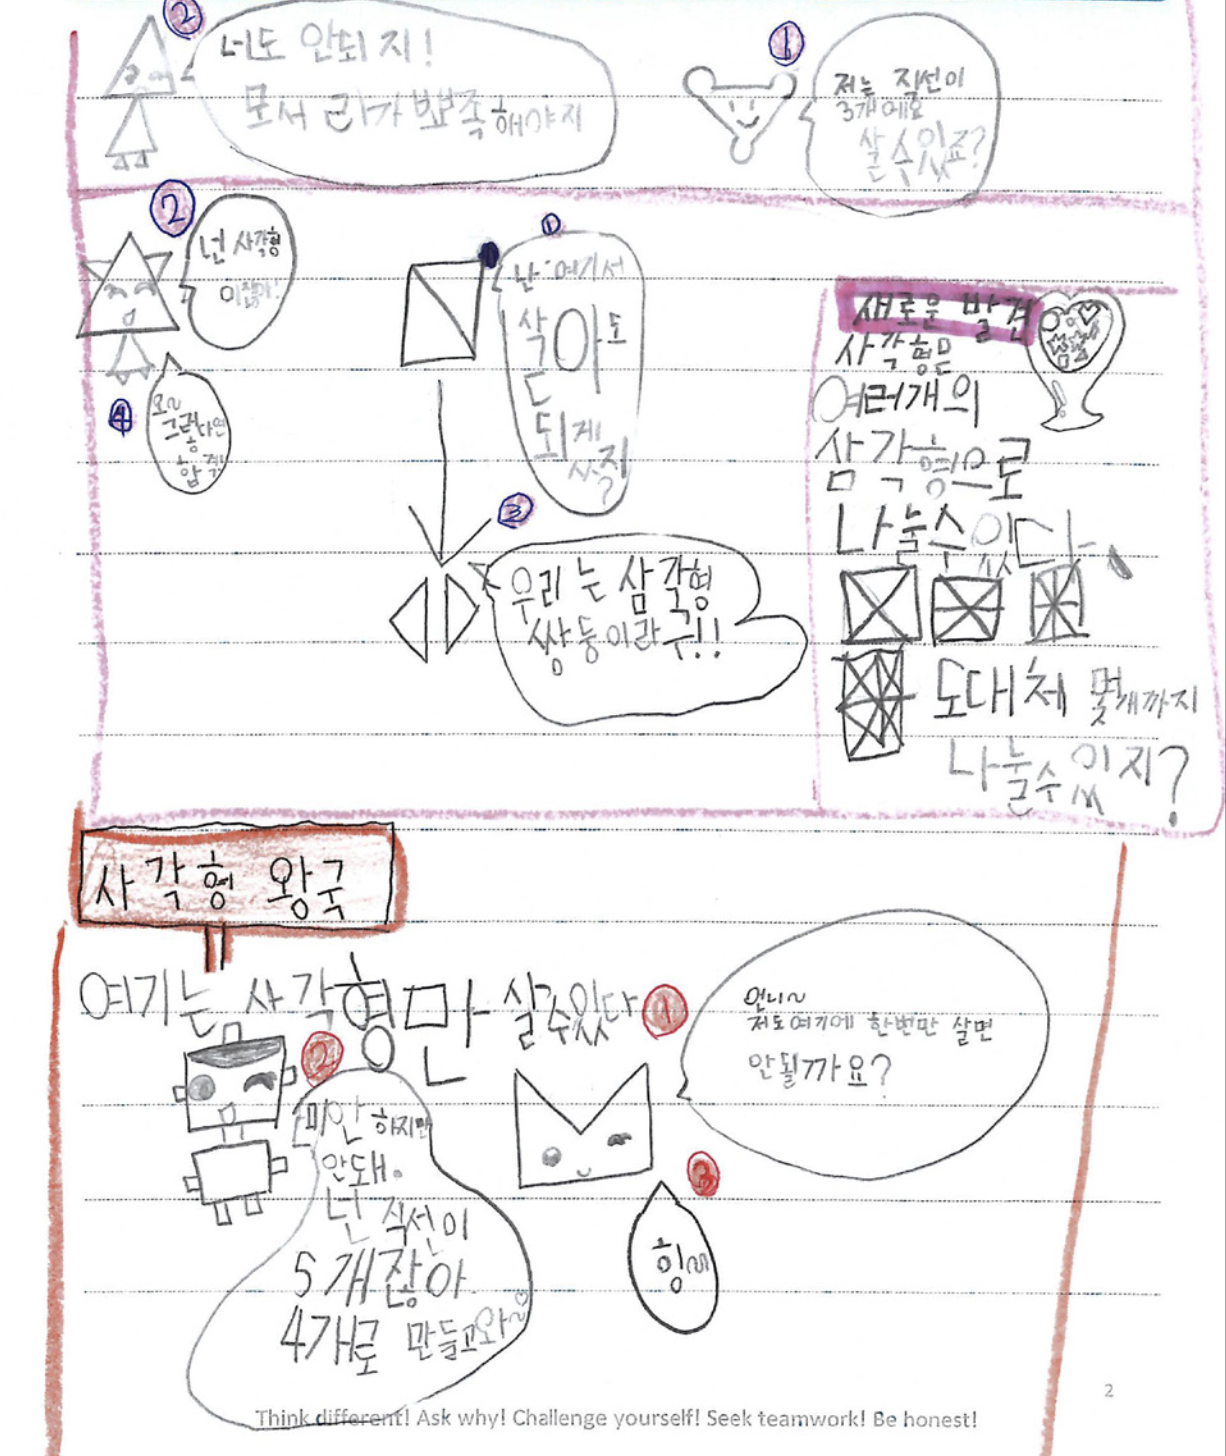 ②
너도 안되지!
모서리가 뾰족해야지
①
저는 직선이
3개에요
살수있죠?
②
넌 사각형
이잖아!
①
난 여기서
살아도
되겠
지?
④
오~
그렇다면
합격!
③
우리는 삼각형
쌍둥이라구!!
새로운 발견
사각형은
여러개의
삼각형으로
나눌수있다.
도대체 몇개까지
나눌수있지?
사각형 왕국
여기는 사각형만 살수있다
①
언니~
저도여기에 한번만 살면
안될까요?
②
미안하지만
안돼.
넌 직선이
5개잖아
4개로 만들고와~♡
③
힝~
2
Think different! Ask why! Challenge yourself! Seek teamwork! Be honest!